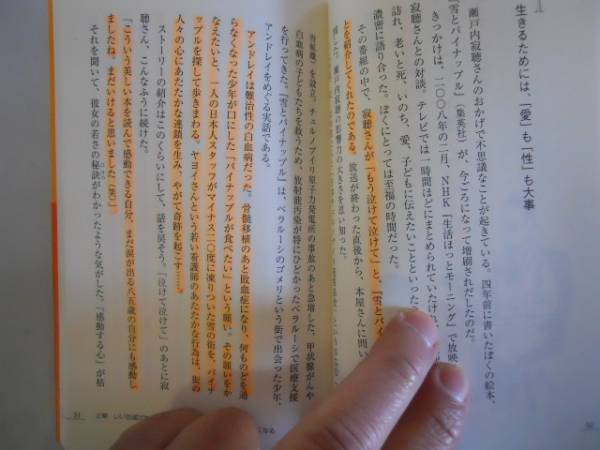 1
生きるためには、「愛」も「性」も大事
瀬戸内寂聴さんのおかげで不思議なことが起きている。四年前に書いたぼくの絵本、
『雪とパイナップル』（集英社）が、今ごろになって増刷されだしたのだ。
きっかけは、二〇〇八年の二月、NHK『生活ほっとモーニング』で放映
寂聴さんとの対談。テレビでは一時間ほどにまとめられていたけれ
訪れ、老いと死、いのち、愛、子どもに伝えたいことといった
濃密に語り合った。ぼくにとっては至福の時間だった。
その番組の中で、寂聴さんが「もう泣けて泣けて」と、『雪とパイ
とを紹介してくれたのである。放送が終わった直後から、本屋さんに問い
瀬戸内寂聴の影響力の大きさを思い知った。
を設立。チェルノブイリ原子力発電所の事故のあと急増した、甲状腺がんや
白血病の子どもたちを救うため、放射能汚染が特にひどかったベラルーシで医療支援
を行ってきた。『雪とパイナップル』は、ベラルーシのゴメリという街で出会った少年、
アンドレイをめぐる実話である。
アンドレイは難治性の白血病だった。骨髄移植のあと敗血症になり、何ものどを通
らなくなった少年が口にした「パイナップルが食べたい」という願い。その願いをか
なえたいと、一人の日本人スタッフがマイナス二〇度に凍りついた雪の街を、パイナ
ップルを探して歩きまわる。ヤヨイさんという若い看護師のあたたかな行為は、街の
人々の心にあたたかな連鎖を生み、やがて奇跡を起こす……。
ストーリーの紹介はこのくらいにして、話を戻そう。「泣けて泣けて」のあとに寂
聴さん、こんなふうに続けた。
「こういう美しい本を読んで感動できる自分、まだ涙が出る八五歳の自分にも感動し
ましたね。まだいけると思いました（笑）」
それを聞いて、彼女の若さの秘訣がわかったような気がした。「感動する心」が枯
51
50